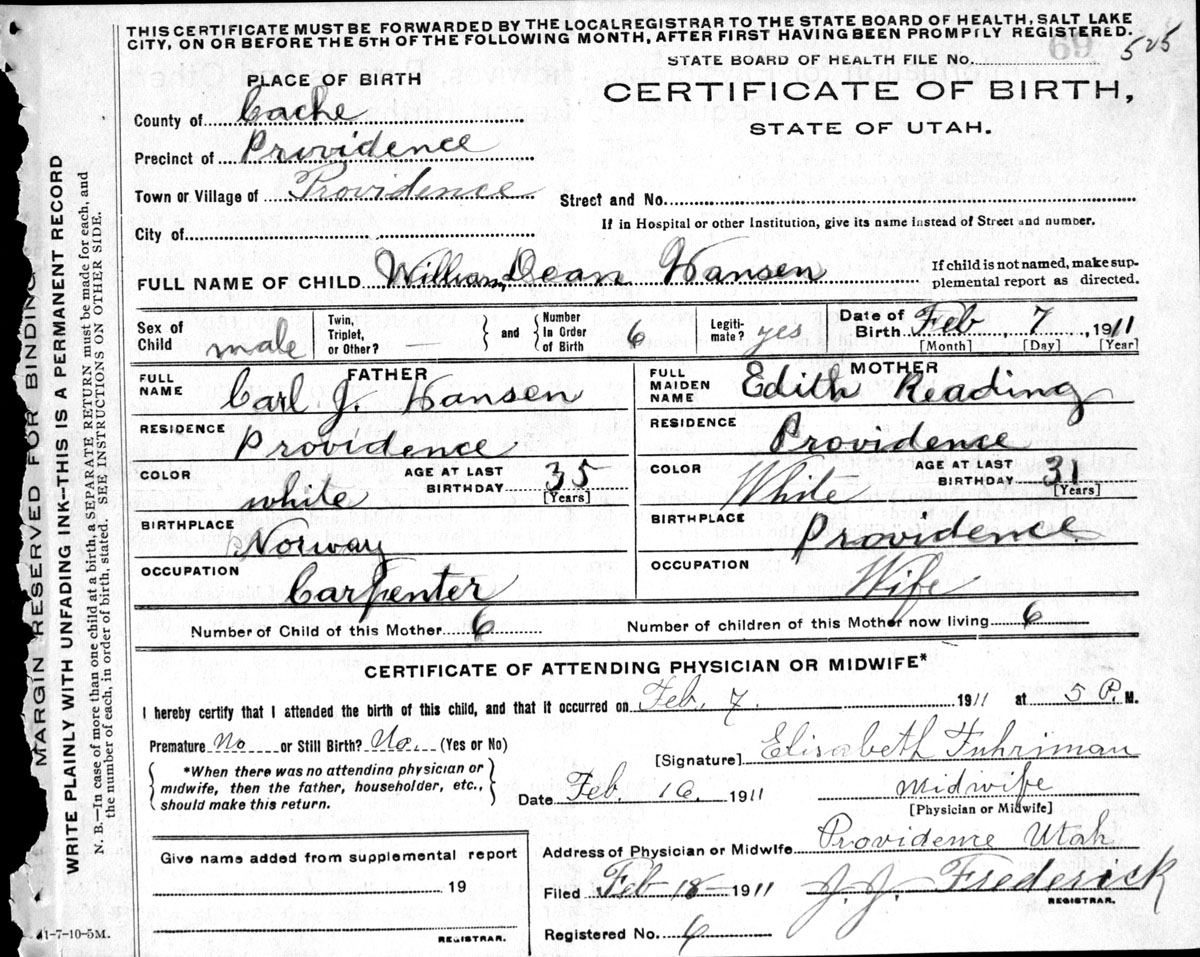 THIS CERTIFICATE MUST BE FORWARDED BY THE LOCAL REGISTRAR TO THE STATE BOARD OF HEALTH, SALT LAKE
CITY, ON OR BEFORE THE 5TH OF THE FOLLOWING MONTH, AFTER FIRST HAVING BEEN PROMPTLY REGISTERED.
STATE BOARD OF HEALTH FILE No. 69 525
PLACE OF BIRTH
CERTIFICATE OF BIRTH,
STATE OF UTAH.
County of Cache
Precinct of Providence
Town or Village of Providence
Street and No.
City of
If in Hospital or other Institution, give its name instead of Street and number.
FULL NAME OF CHILD William Dean Hansen
If child is not named, make sup-
plemental report as directed.
Sex of Child male
Twin, Triplet, or Other? —
and
Number In Order of Birth 6
Legiti-mate? yes
Date of Birth Feb 7, 1911
[Month] [Day] [Year]
FATHER
FULL NAME Carl J. Hansen
RESIDENCE Providence
COLOR white
AGE AT LAST BIRTHDAY 35 [Years]
BIRTHPLACE Norway
OCCUPATION Carpenter
MOTHER
FULL MAIDEN NAME Edith Reading
RESIDENCE Providence
COLOR White
AGE AT LAST BIRTHDAY 31 [Years]
BIRTHPLACE Providence
OCCUPATION Wife
Number of Child of this Mother 6
Number of children of this Mother now living 6
CERTIFICATE OF ATTENDING PHYSICIAN OR MIDWIFE*
I hereby certify that I attended the birth of this child, and that it occurred on Feb. 7. 1911 at 5 P. M.
Premature No or Still Birth? No. (Yes or No)
[Signature] Elisabeth Fuhriman
*When there was no attending physician or
midwife, then the father, householder, etc.,
should make this return.
Date Feb. 16. 1911
Midwife
[Physician or Midwife]
Address of Physician or Midwife Providence Utah
Give name added from supplemental report
19
REGISTRAR.
Filed Feb 18 1911
J. J. Frederick
REGISTRAR.
Registered No. 6
1-7-10-5M.
MARGIN RESERVED FOR BINDING
WRITE PLAINLY WITH UNFADING INK—THIS IS A PERMANENT RECORD
N. B.—In case of more than one child at a birth, a SEPARATE RETURN must be made for each, and
the number of each, in order of birth, stated. SEE INSTRUCTIONS ON OTHER SIDE.